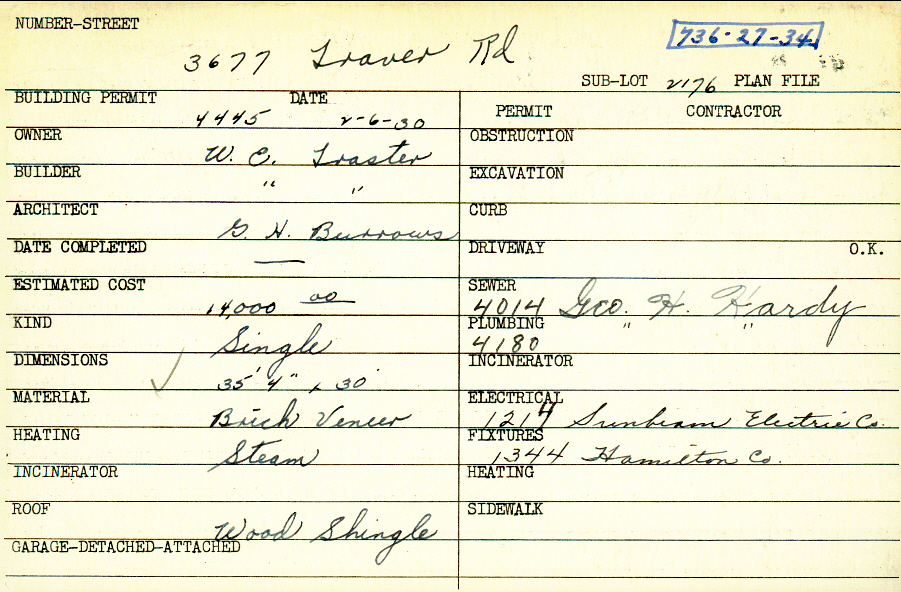 NUMBER-STREET
3677 Traver Rd
736-27-34
SUB-LOT 2176 PLAN FILE
BUILDING PERMIT DATE
4445 2-6-30
OWNER
W. C. Traster
BUILDER
" "
ARCHITECT
G. H. Burrows
DATE COMPLETED
—
ESTIMATED COST
14,000 00
KIND
Single
DIMENSIONS
35' 4" x 30'
MATERIAL
Brick Veneer
HEATING
Steam
INCINERATOR
ROOF
Wood Shingle
GARAGE-DETACHED-ATTACHED
PERMIT CONTRACTOR
OBSTRUCTION
EXCAVATION
CURB
DRIVEWAY O.K.
SEWER
4014 Geo. H. Hardy
PLUMBING
4180 " "
INCINERATOR
ELECTRICAL
1214 Sunbeam Electric Co.
FIXTURES
1344 Hamilton Co.
HEATING
SIDEWALK